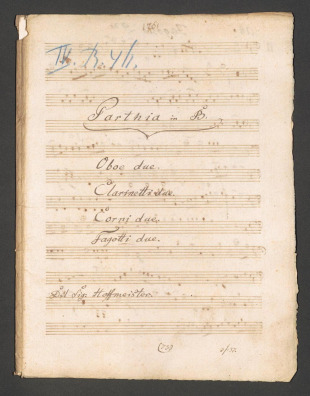 Parthia in B.
Oboe due.
Clarinetti due.
Corni due.
Fagotti due.
Del Sig: Hoffmeister.